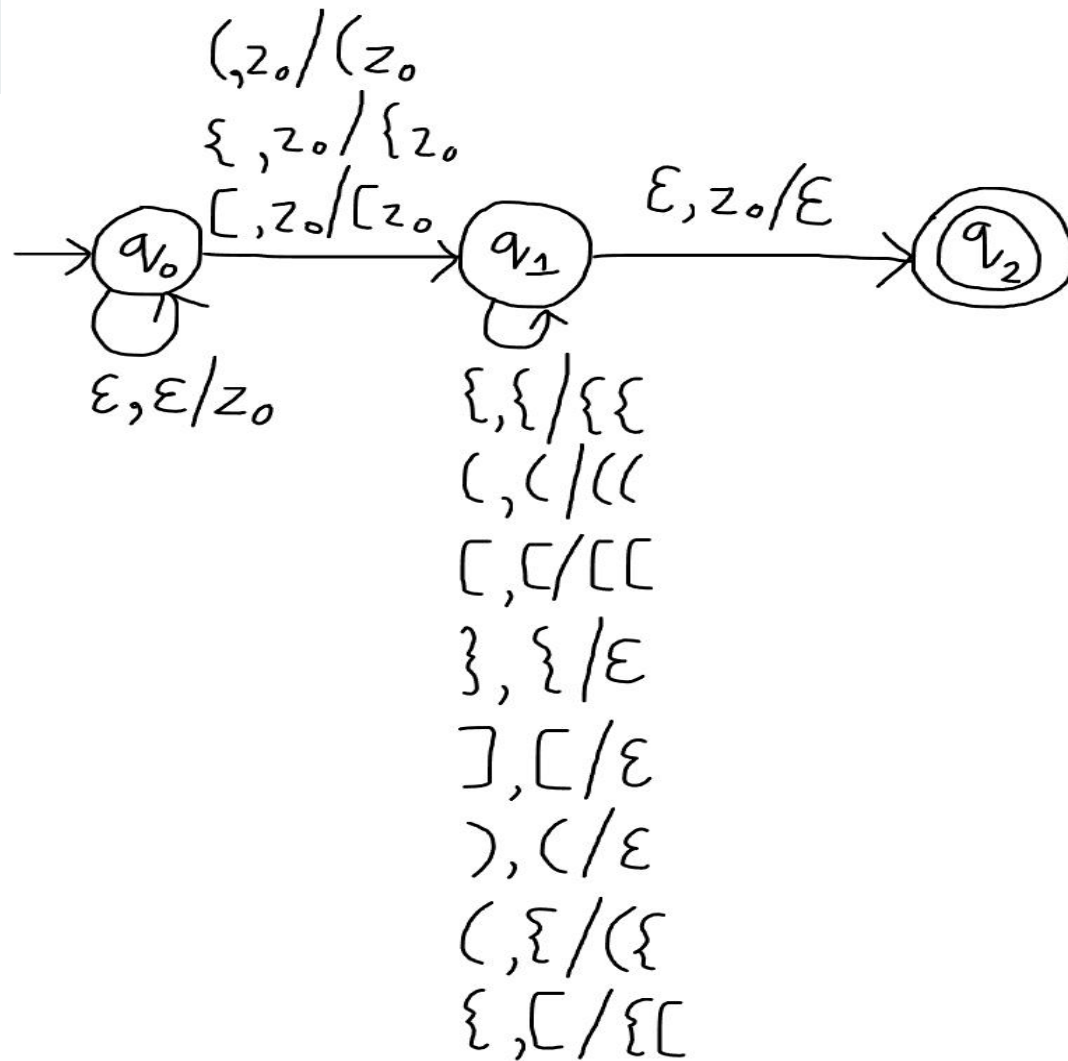 (,z₀/(z₀
{,z₀/{z₀
[,z₀/[z₀
ε,z₀/ε
q₀
q₁
q₂
ε,ε/z₀
{,{/{{
(,(/((
[,[/[[
},{/ε
],[/ε
),(/ε
(,{/({
{,[/{[